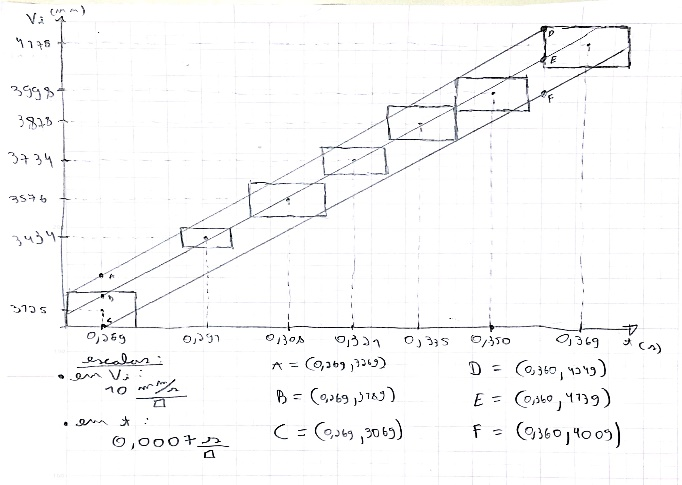 Vi (mm)
4175
3998
3878
3734
3576
3434
3125
D
E
F
A
B
C
0,269
0,291
0,308
0,321
0,335
0,350
0,369
t (s)
escalas:
• em Vi:
10 mm/s
□
• em t:
0,0007 s
□
A = (0,269, 3269)
B = (0,269, 3189)
C = (0,269, 3069)
D = (0,360, 4249)
E = (0,360, 4139)
F = (0,360, 4009)